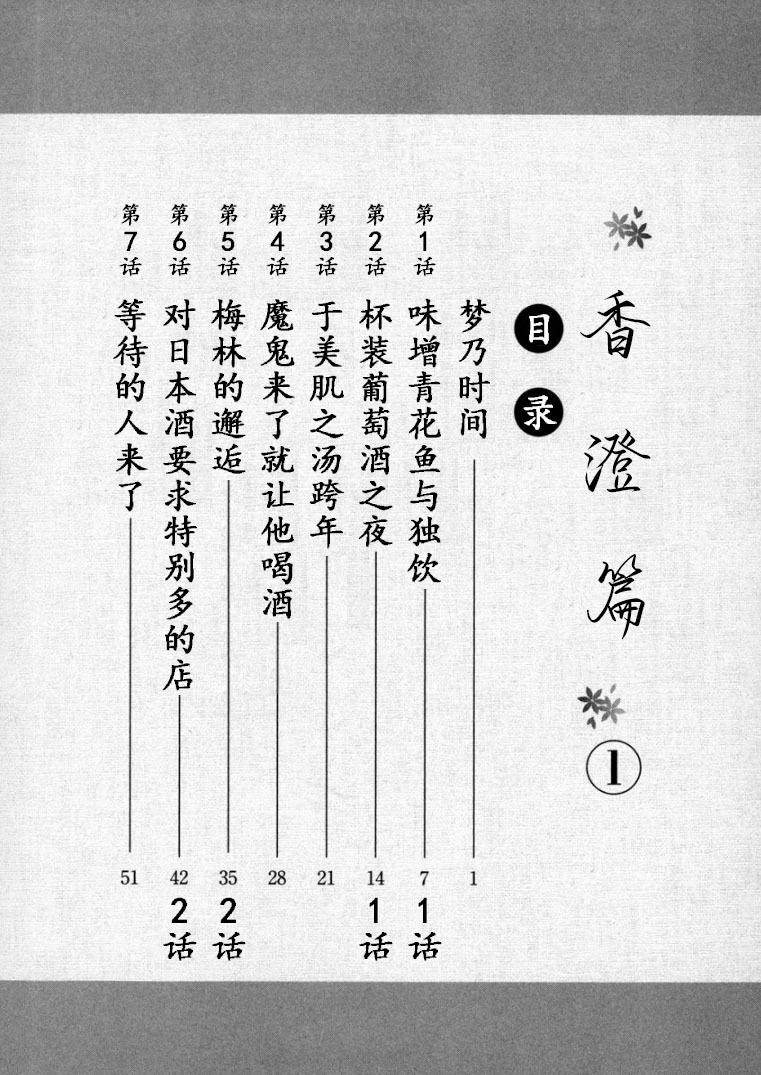 香澄篇
1
目录
梦乃时间 1
第1话 味增青花鱼与独饮 7 1话
第2话 杯装葡萄酒之夜 14 1话
第3话 于美肌之汤跨年 21
第4话 魔鬼来了就让他喝酒 28
第5话 梅林的邂逅 35 2话
第6话 对日本酒要求特别多的店 42 2话
第7话 等待的人来了 51